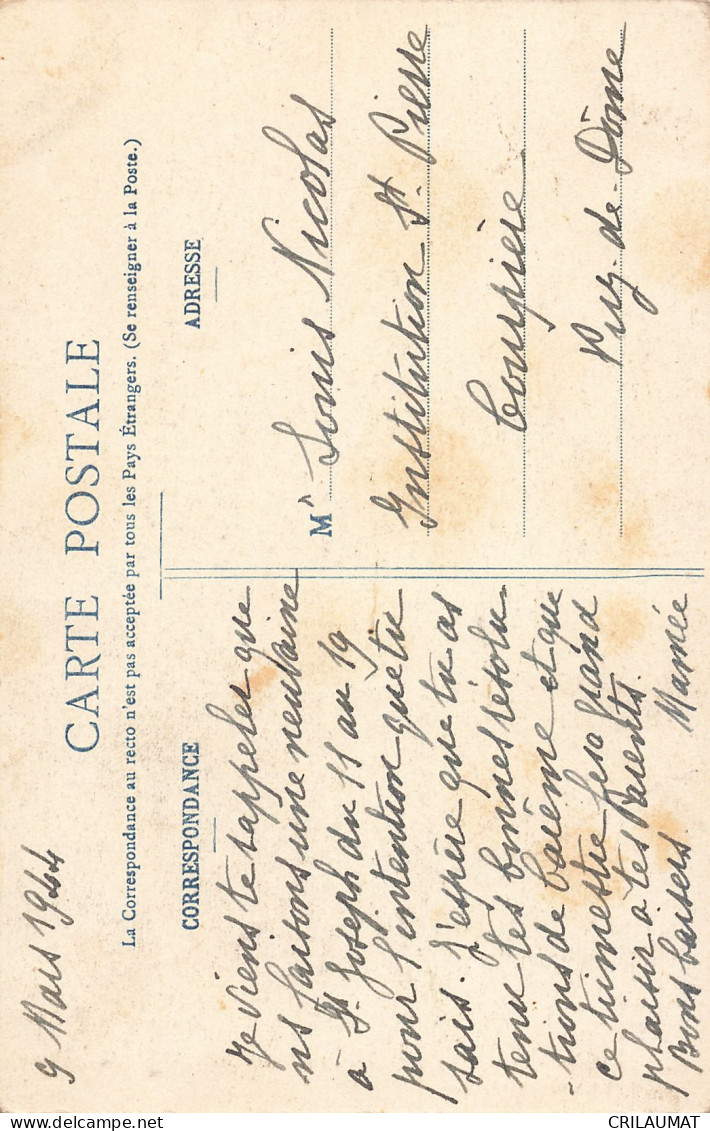 9 Mars 1944
CARTE POSTALE
La Correspondance au recto n'est pas acceptée par tous les Pays Étrangers. (Se renseigner à la Poste.)
CORRESPONDANCE
Je viens te rappeler que
ns faisons une neuvaine
à St. Joseph du 11 au 19
pour l'intention que tu
sais. J'espère que tu as
tenu tes bonnes résolu
-tions de Carême et que
ce trimestre fera grand
plaisir à tes Parents.
Bons baisers. Marnée
ADRESSE
Mr Louis Nicolas
Institution St. Pierre
Courpière
Puy-de-Dôme
delcampe.net
CRILAUMAT